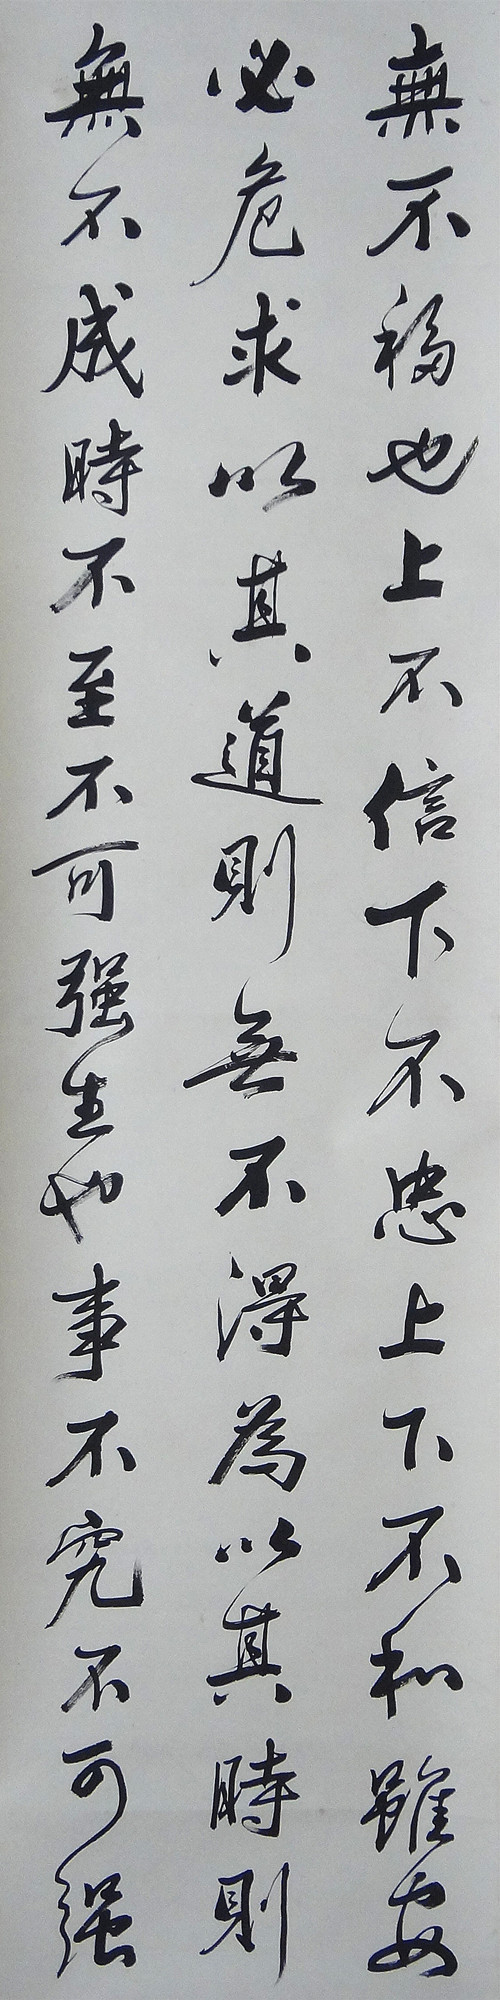 無不福也上不信下不忠上下不和雖安
必危求以其道則無不得為以其時則
無不成時不至不可强生也事不究不可强